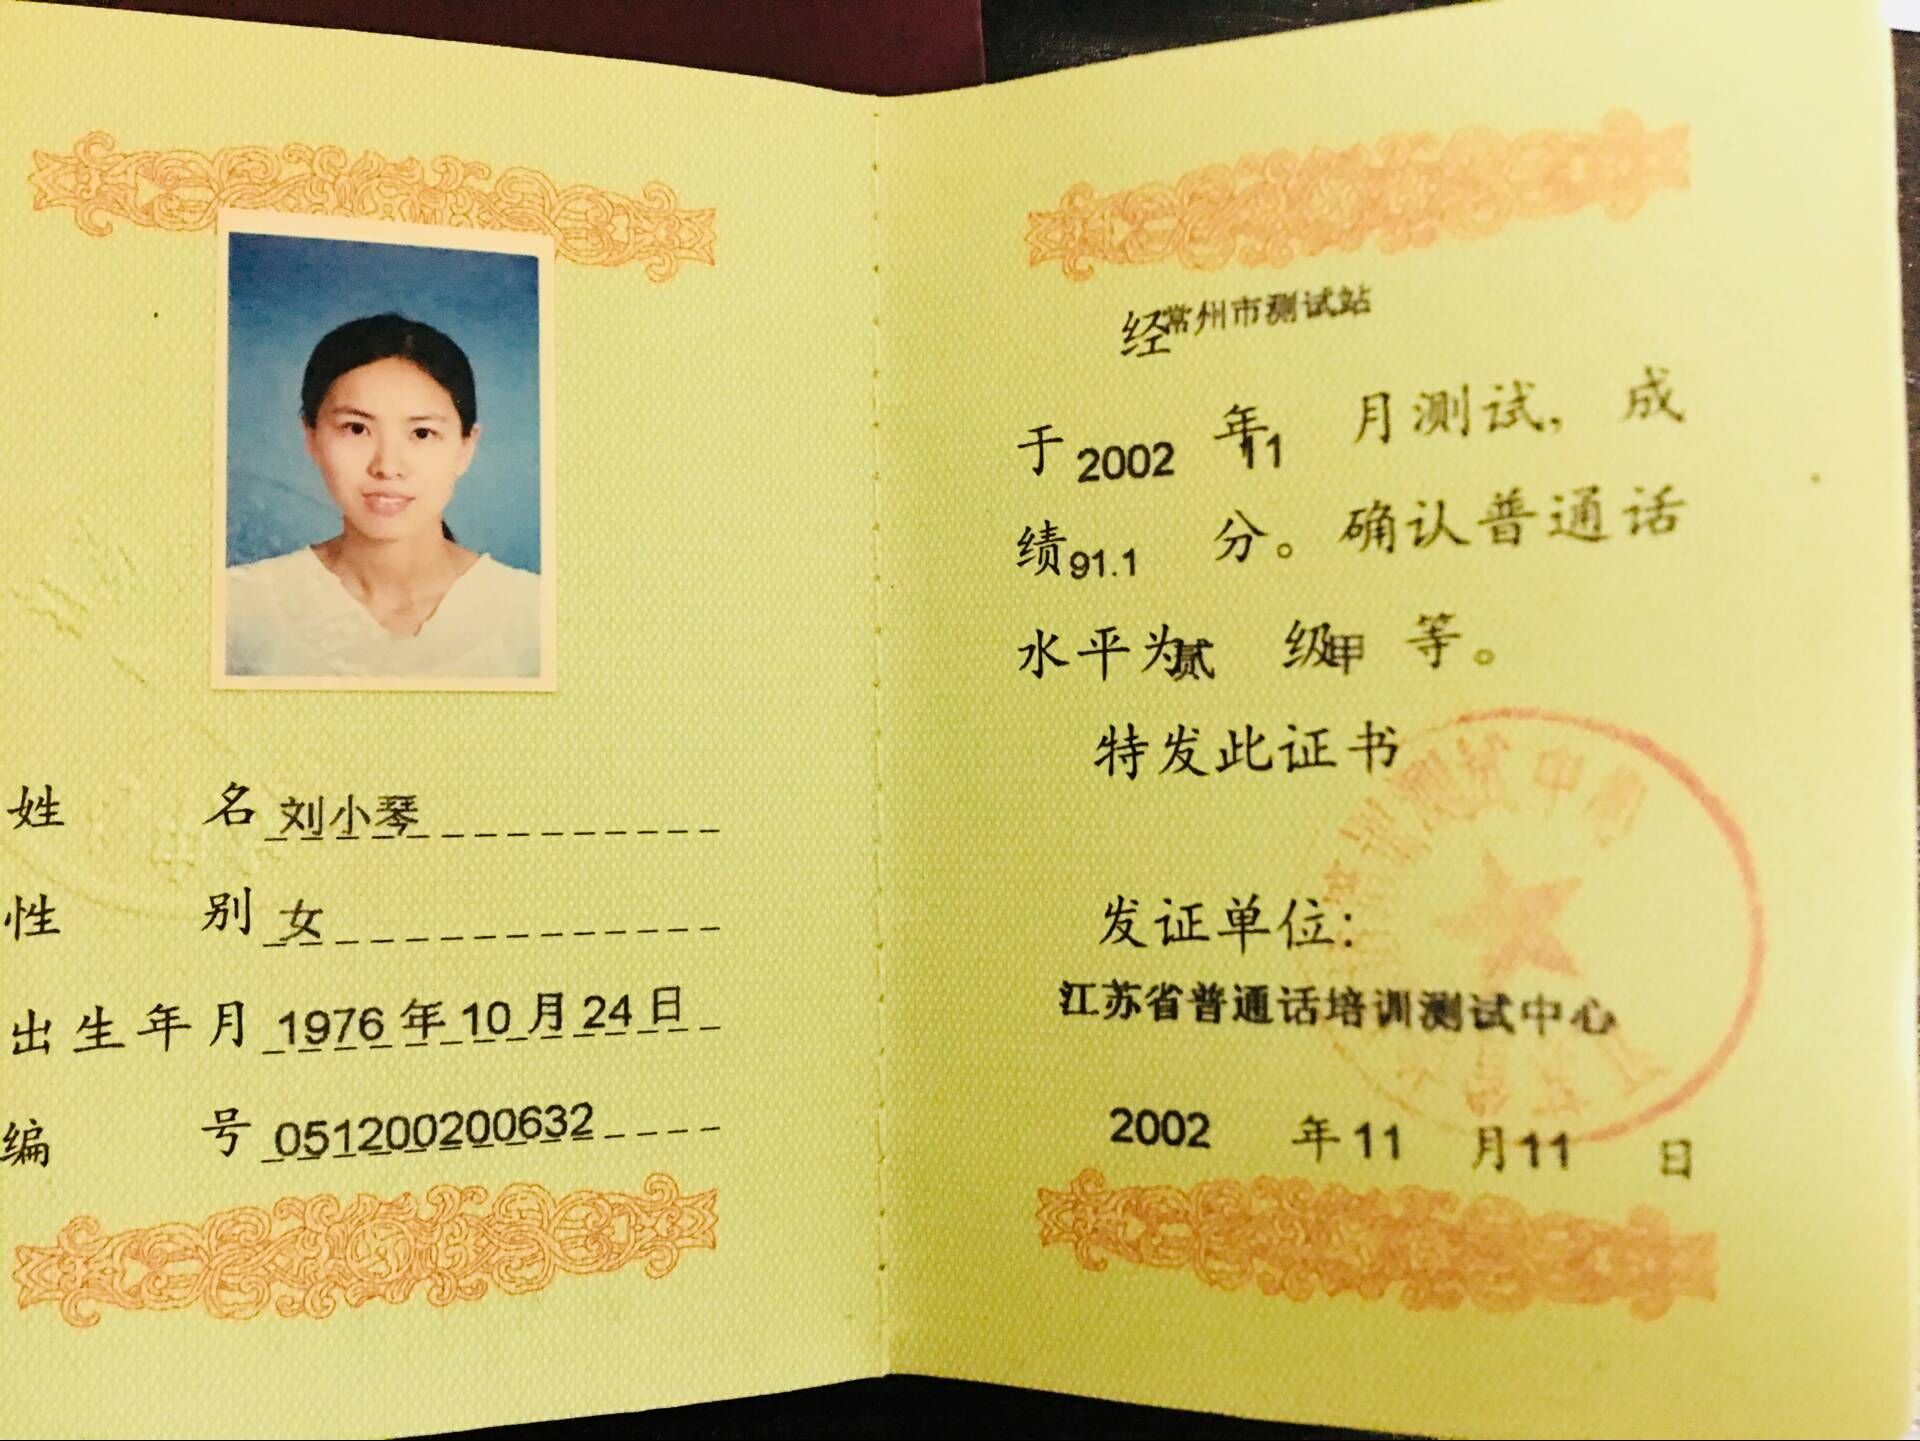 姓名 刘小琴
性别 女
出生年月 1976年10月24日
编号 051200200632
经常州市测试站
于2002年11月测试，成
绩91.1分。确认普通话
水平为贰级甲等。
特发此证书
发证单位：
江苏省普通话培训测试中心
2002年11月11日